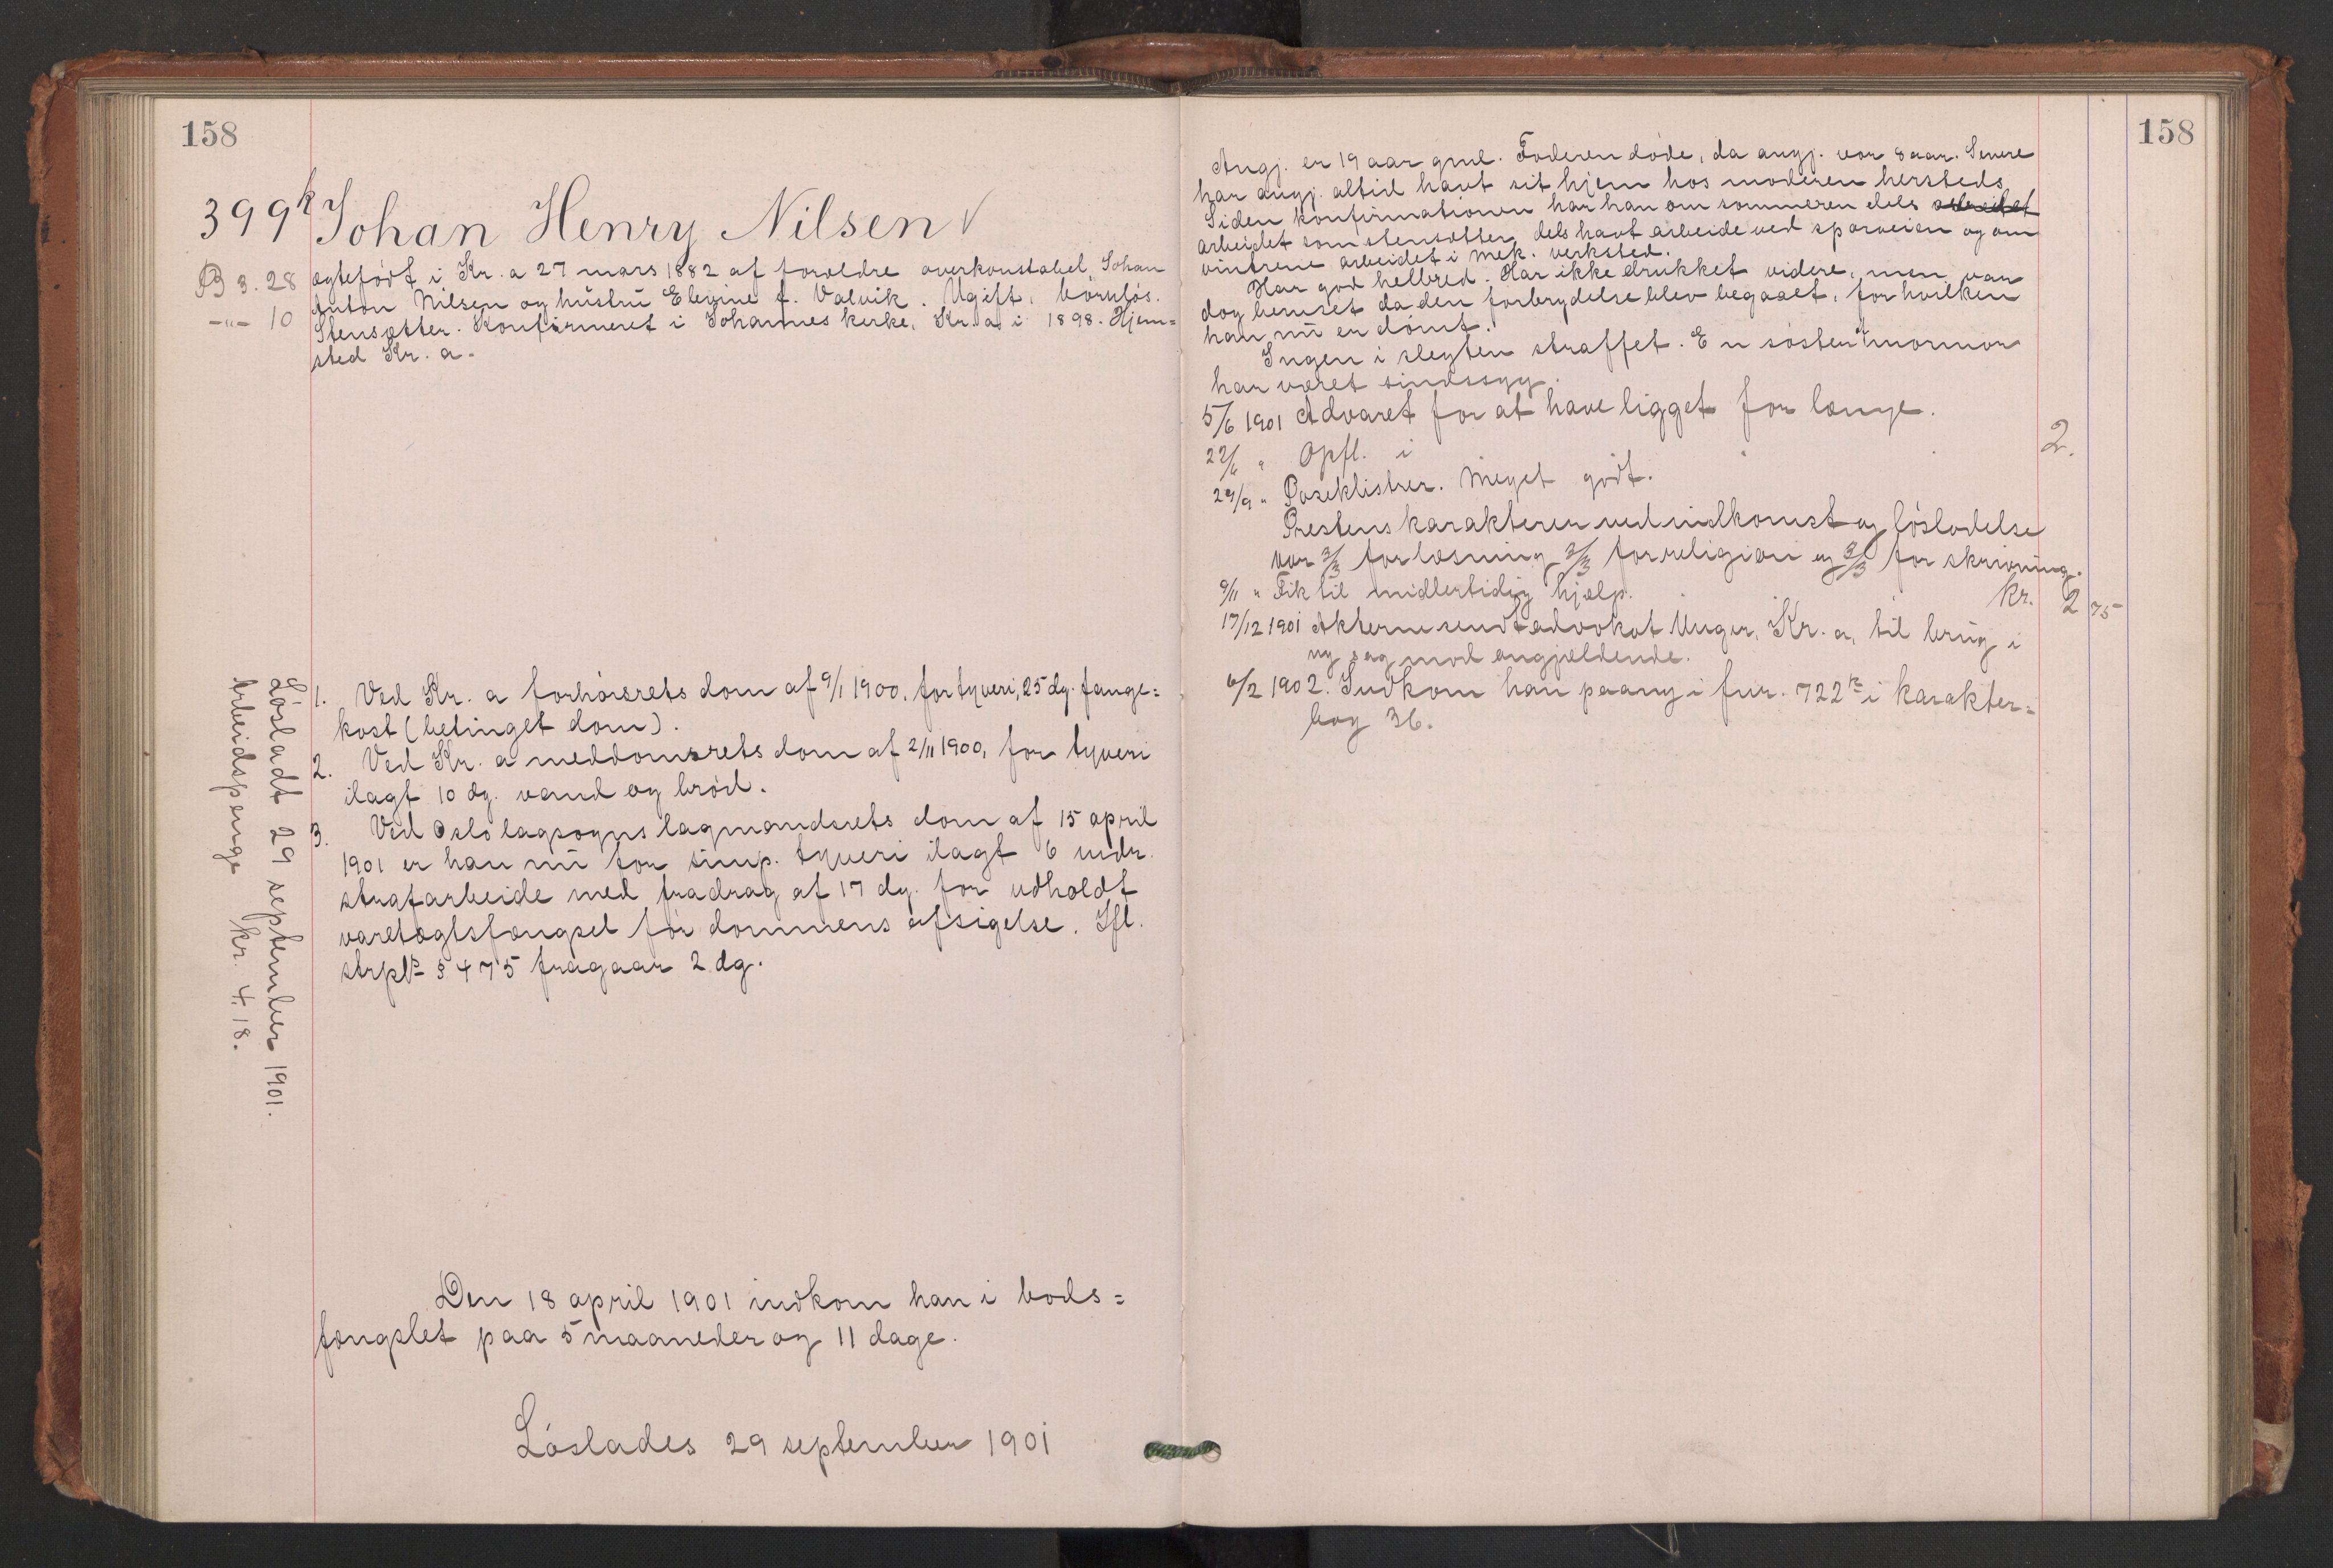 158
399k Johan Henry Nilsen √
B 3. 28
-"- 10
ægtefødt i Kr.a 27 mars 1882 af forældre overkonstabel, Johan
Anton Nilsen og hustru Elegine f. Valvik. Ugift, børnløs.
Stensætter. Konfirmeret i Johannes kirke, Kr.a, i 1898. Hjem=
sted Kr.a.
1. Ved Kr.a forhørsrets dom af 9/1 1900, for tyveri, 25 dg. fange=
kost (betinget dom).
2. Ved Kr.a meddomsrets dom af 2/11 1900, for tyveri
ilagt 10 dg. vand og brød.
3. Ved Oslo lagsogns lagmandsrets dom af 15 april
1901 er han nu for simp. tyveri ilagt 6 mdr.
strafarbeide med fradrag af 17 dg. for udholdt
varetægtsfængsel før dommens afsigelse. Ifl.
strpl§ § 475 fragaar 2 dg.
Løsladt 29 september 1901.
Arbeidspenge kr. 4.18.
Den 18 april 1901 indkom han i bods=
fængslet paa 5 maaneder og 11 dage.
Løslades 29 september 1901
158
Angj. er 19 aar gml. Faderen døde, da angj. var 8 aar. Senere
har angj. altid havt sit hjem hos moderen hersteds
Siden konfirmationen har han om sommeren dels arbeidet
arbeidet som stensætter, dels havt arbeide ved sporveien og om
vintrene arbeidet i mek. verksted.
Har god helbred. Har ikke drukket videre, men var
dog beruset da den forbrydelse blev begaaet, for hvilken
han nu er dømt.
Ingen i slegten straffet. En søster af mormor
har været sindssyg.
5/6 1901 Advaret for at have ligget for længe.
22/6 " Opfl. i 2.
29/9 " Poseklistrer. Meget godt.
Prestens karakterer ved indkomst og løsladelse
var 3/3 for læsning, 3/3 for religion og 3/3 for skrivning.
9/11 " Fik til midlertidig hjælp. kr. 2 75
17/12 1901 Akterne sendt advokat Unger, Kr.a, til brug i
ny sag mod angjældende.
6/2 1902. Indkom han paany i fnr. 722k i karakter=
bog 36.